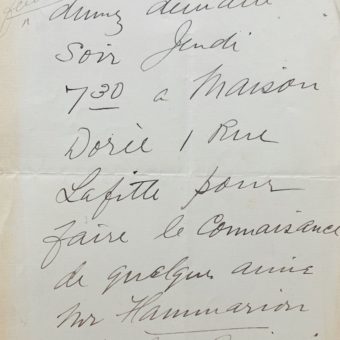 demain
Soir Jeudi
7 30 a Maison
Dorée 1 Rue
Lafitte pour
faire le Connaisance
de quelque amie
Mr Flammarion